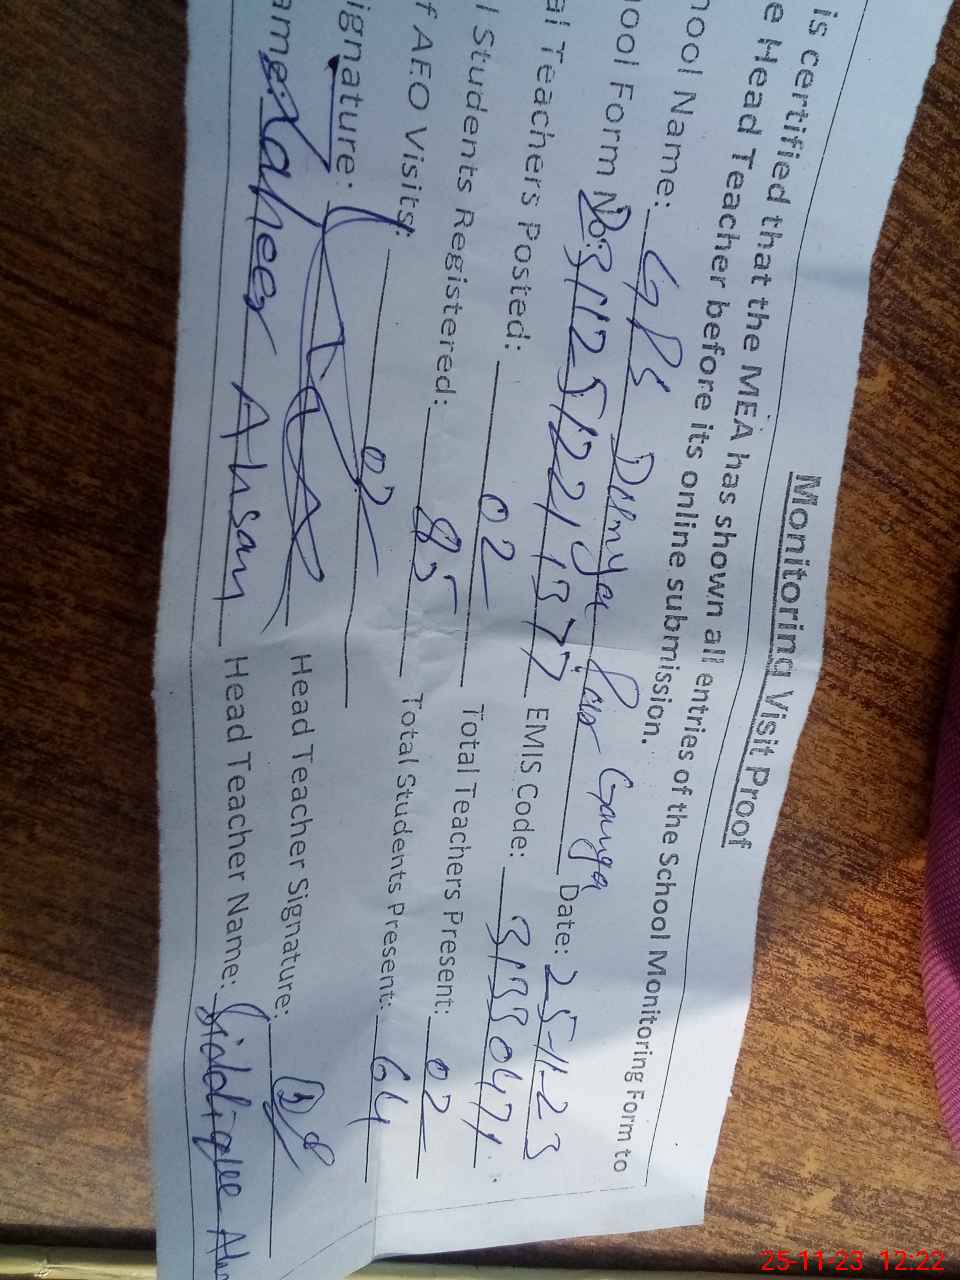 Monitoring Visit Proof
is certified that the MEA has shown all entries of the School Monitoring Form to
e Head Teacher before its online submission.
hool Name: GPS Dunya Pur Ganga Date: 25-11-23
hool Form No: 3112512211377 EMIS Code: 31330471
al Teachers Posted: 02 Total Teachers Present: 02
l Students Registered: 85 Total Students Present: 64
f AEO Visits: 02
ignature: Head Teacher Signature:
ame: Zaheer Ahsan Head Teacher Name: Siddique
25-11-23 12:22